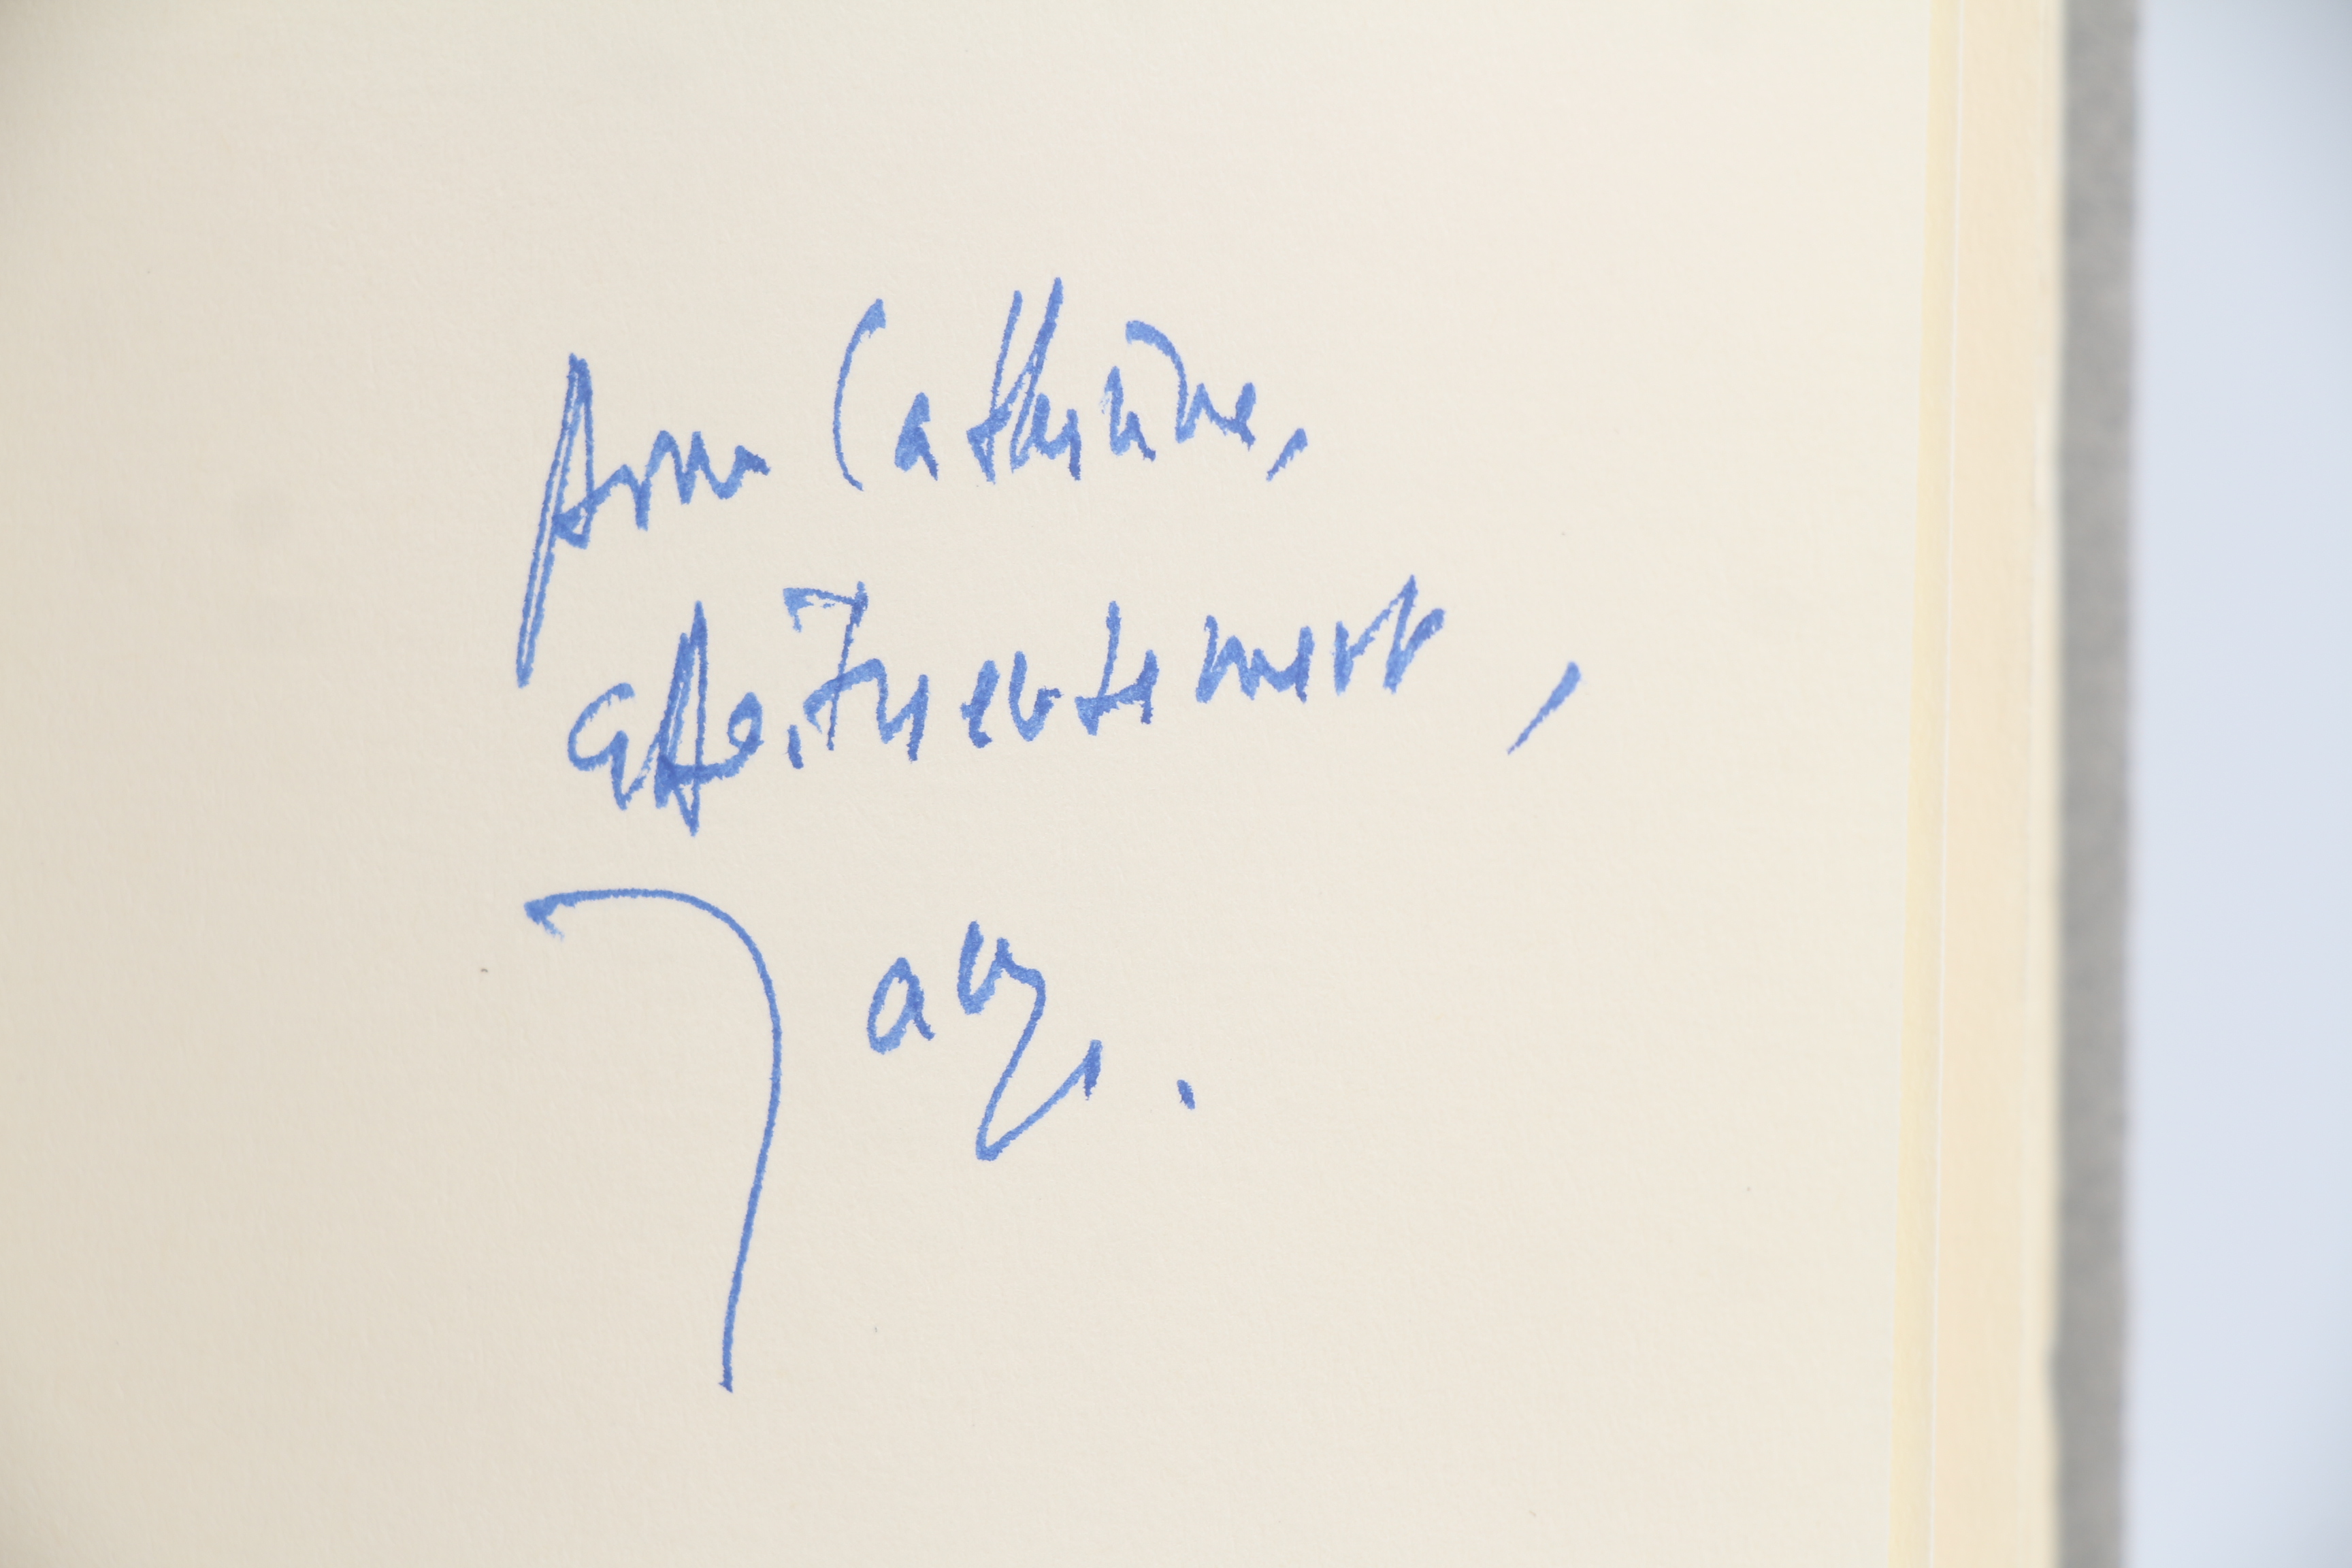 pour Catherine,
affectueusement,
Jacq.